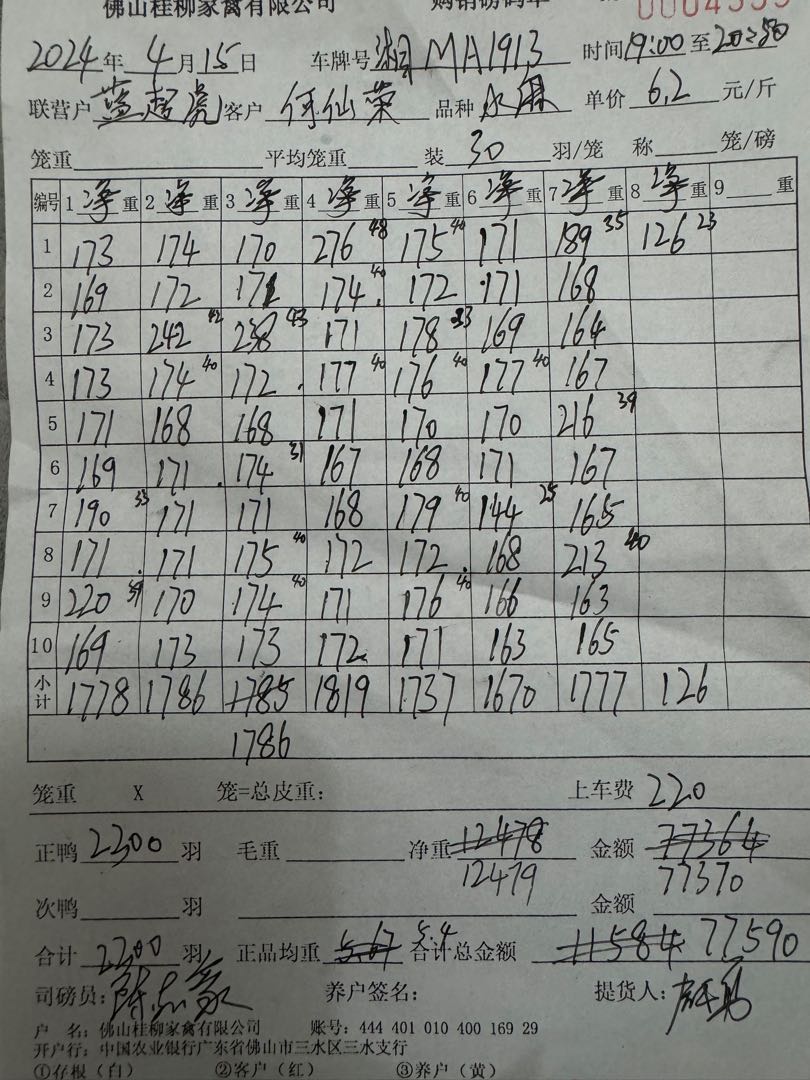 佛山桂柳家禽有限公司 购销磅码单
2024年 4月15日 车牌号 湘MA1913 时间19:00至20:50
联营户 蓝超亮 客户 何仙荣 品种 单价 6.2 元/斤
笼重 平均笼重 装 30 羽/笼 称 笼/磅
编号 1 净 重 2 净 重 3 净 重 4 净 重 5 净 重 6 净 重 7 净 重 8 净 重 9 重
1 173 174 170 276 48 175 40 171 189 35 126 23
2 169 172 171 174 40 172 171 168
3 173 242 42 238 43 171 178 33 169 164
4 173 174 40 172 177 40 176 40 177 40 167
5 171 168 168 171 170 170 216 39
6 169 171 174 31 167 168 171 167
7 190 33 171 171 168 179 40 144 25 165
8 171 171 175 40 172 172 168 213 40
9 220 39 170 174 40 171 176 40 166 163
10 169 173 173 172 171 163 165
小计 1778 1786 1785 1819 1737 1670 1777 126
1786
笼重 X 笼=总皮重: 上车费 220
正鸭 2300 羽 毛重 净重 12478 金额 77364
12479 77370
次鸭 羽 金额
合计 2200 羽 正品均重 5.67 5.4 合计总金额 11584 77590
司磅员: 养户签名: 提货人:
户 名: 佛山桂柳家禽有限公司 账号: 444 401 010 400 169 29
开户行: 中国农业银行广东省佛山市三水区三水支行
①存根(白) ②客户(红) ③养户(黄)